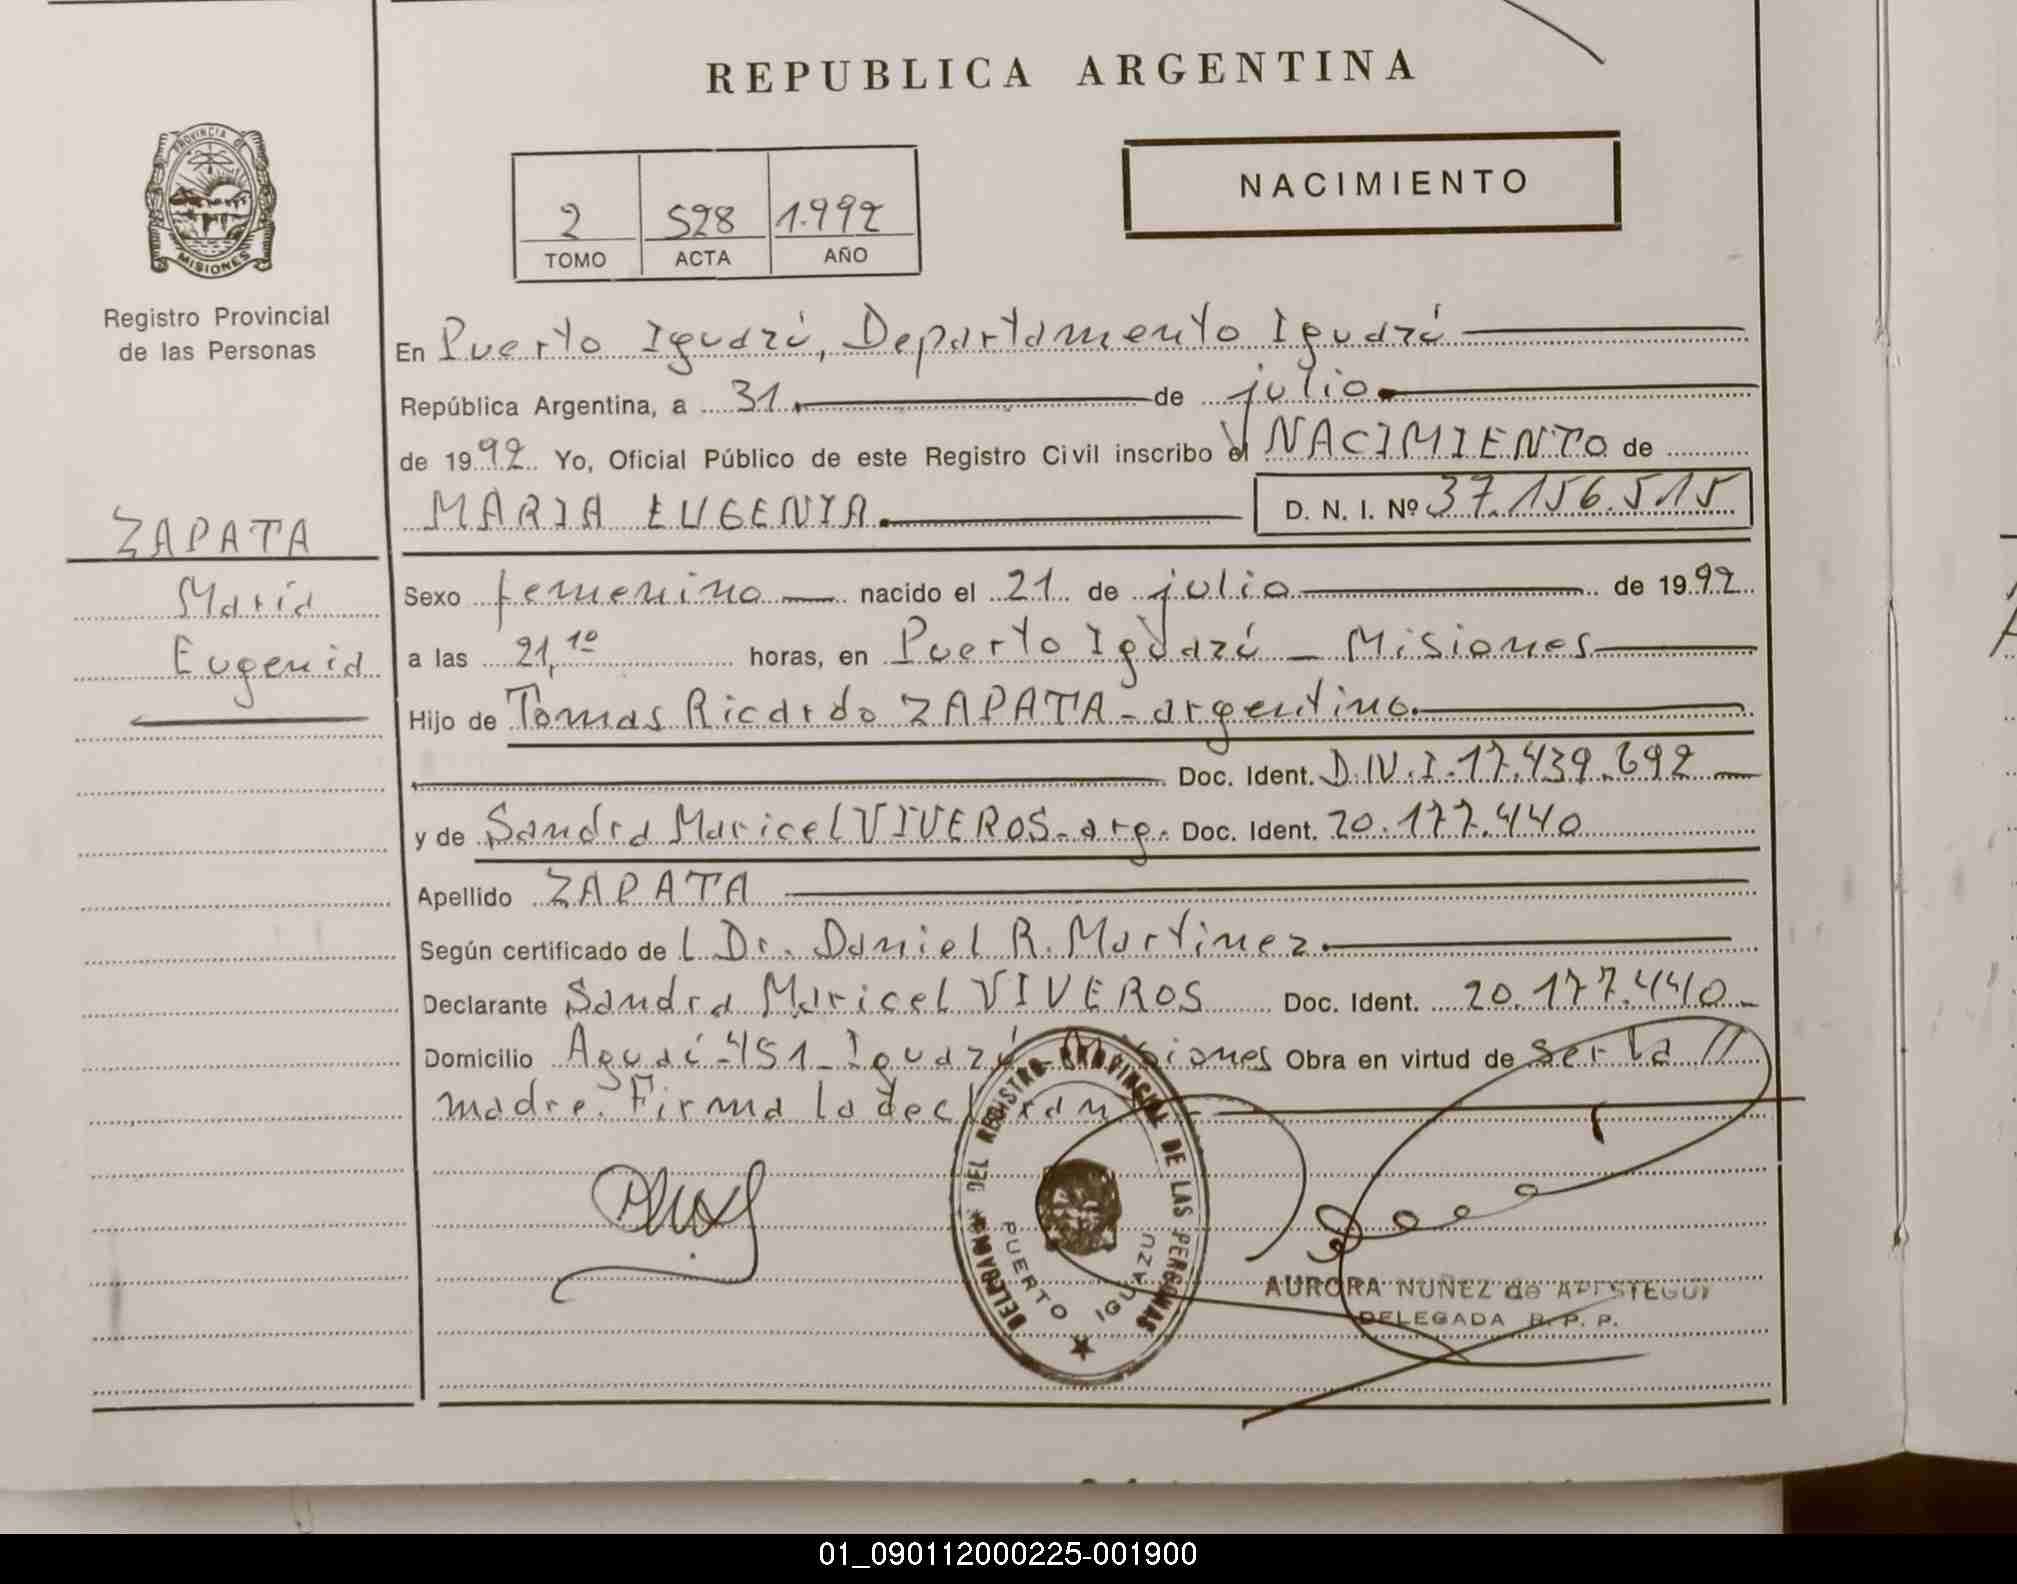 REPUBLICA ARGENTINA
NACIMIENTO
2 528 1.992
TOMO ACTA AÑO
PROVINCIA DE MISIONES
Registro Provincial
de las Personas
En Puerto Iguazú, Departamento Iguazú
República Argentina, a 31 de julio
de 1992 Yo, Oficial Público de este Registro Civil inscribo el NACIMIENTO de
MARIA EUGENIA D. N. I. Nº 37.156.515
ZAPATA
María
Eugenia
Sexo femenino nacido el 21 de julio de 1992
a las 21,10 horas, en Puerto Iguazú - Misiones
Hijo de Tomas Ricardo ZAPATA - argentino.
Doc. Ident. D.N.I. 17.439.692
y de Sandra Maricel VIVEROS - arg. Doc. Ident. 20.177.440
Apellido ZAPATA
Según certificado de L Dr. Daniel R. Martinez
Declarante Sandra Maricel VIVEROS Doc. Ident. 20.177.440
Domicilio Aguaí 451 - Iguazú - Misiones Obra en virtud de ser la //
madre. Firma la declaran
DELEGACION DEL REGISTRO PROVINCIAL DE LAS PERSONAS
PUERTO IGUAZU
AURORA NUÑEZ de APESTEGUI
DELEGADA R. P. P.
01_090112000225-001900